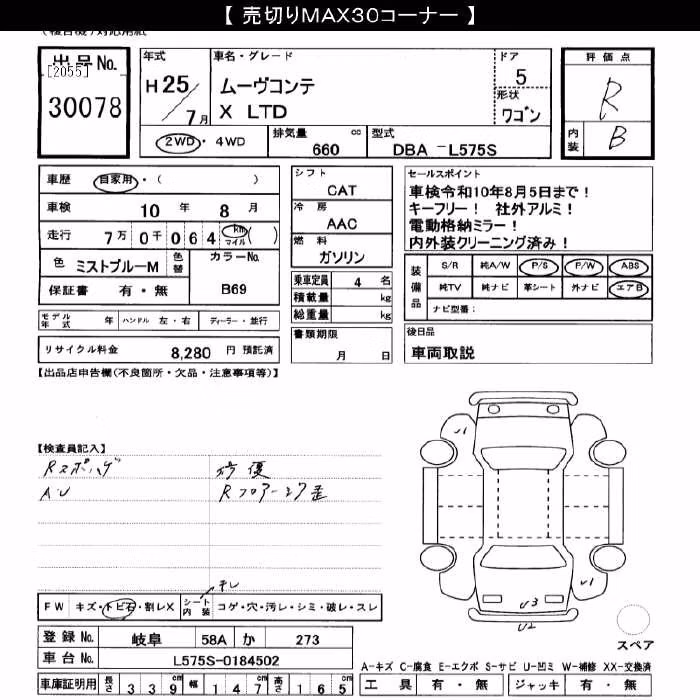 【 売切りMAX30コーナー 】
出品No. [2055] 30078
年式 H25/7月
車名・グレード ムーヴコンテ X LTD
ドア 5
形状 ワゴン
評価点 R
内装 B
2WD・4WD
排気量 660 cc
型式 DBA -L575S
車歴 自家用・( )
車検 10 年 8 月
走行 7万 0千 0 6 4 km マイル ( )
色 ミストブルーM 色替
カラーNo. B69
保証書 有・無
モデル年式 年 ハンドル 左・右 ディーラー・並行
リサイクル料金 8,280 円 預託済
シフト CAT
冷房 AAC
燃料 ガソリン
乗車定員 4 名
積載量 kg
総重量 kg
書類期限 月 日
セールスポイント
車検令和10年8月5日まで！
キーフリー！ 社外アルミ！
電動格納ミラー！
内外装クリーニング済み！
装備品 S/R 純A/W P/S P/W ABS
純TV 純ナビ 革シート 外ナビ エアB
ナビ型番：
後日品
車両取説
【出品店申告欄(不良箇所・欠品・注意事項等)】
【検査員記入】
Rスポハゲ 修復
AU Rフロアーコア歪
U1
U1
U3
U2
スペア
FW キズ・トビ石・割レX シート内装 コゲ・穴・汚レ・シミ・破レ・スレ
登録No. 岐阜 58A か 273
車台No. L575S-0184502
車庫証明用 長さ 339cm 幅 147cm 高さ 165cm
A-キズ C-腐食 E-エクボ S-サビ U-凹ミ W-補修 XX-交換済
工具 有・無 ジャッキ 有・無